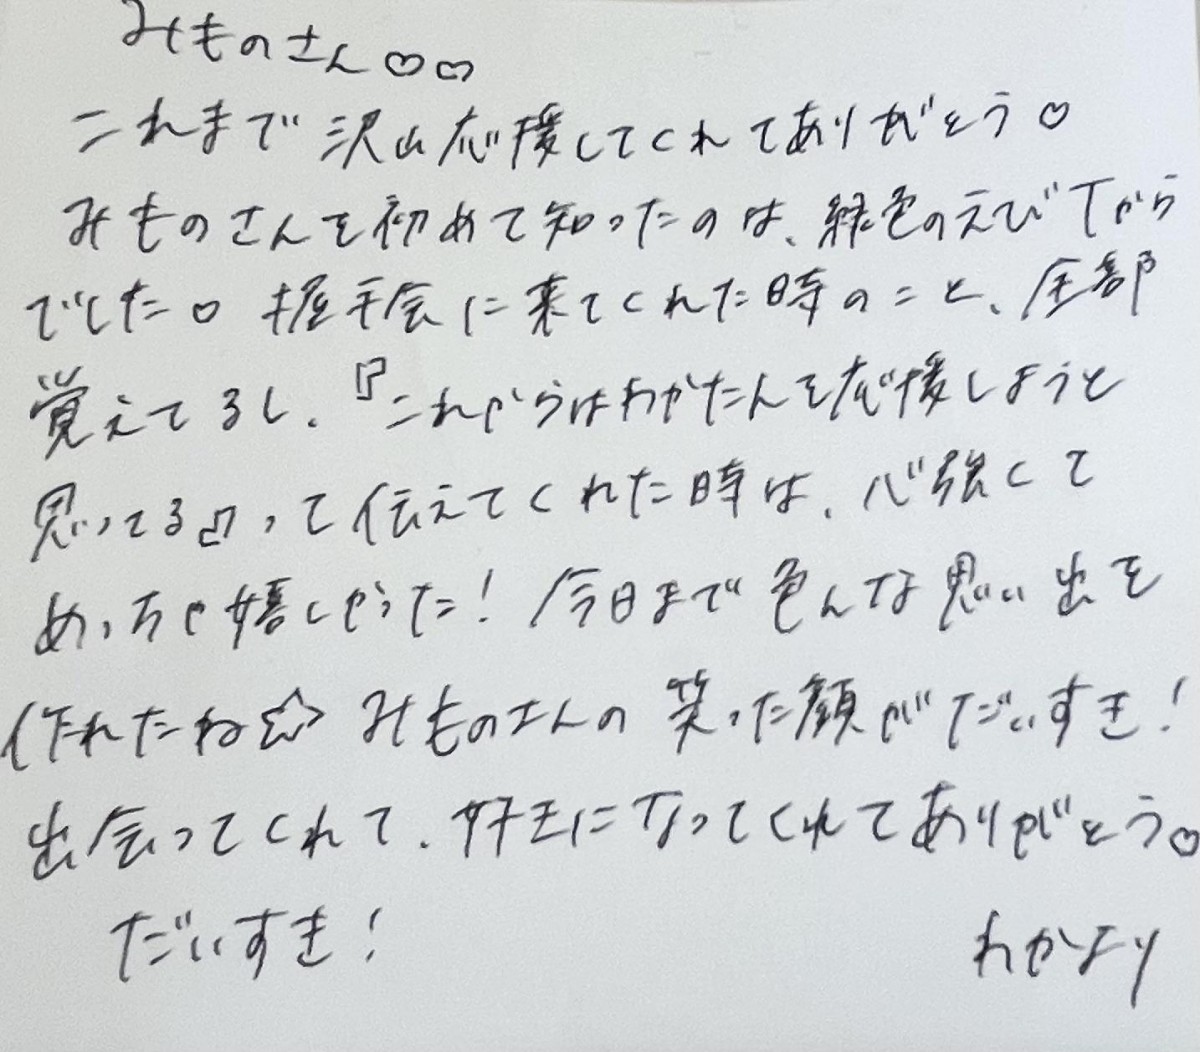 みものさん♡♡
これまで沢山応援してくれてありがとう♡
みものさんを初めて知ったのは、緑色のえびTから
でした♡ 握手会に来てくれた時のこと、全部
覚えてるし、『これからはわかたんを応援しようと
思ってる』って伝えてくれた時は、心強くて
めっちゃ嬉しかった！今日まで色んな思い出を
作れたね☆ みものさんの笑った顔がだいすき！
出会ってくれて、好きになってくれてありがとう♡
だいすき！
わかより